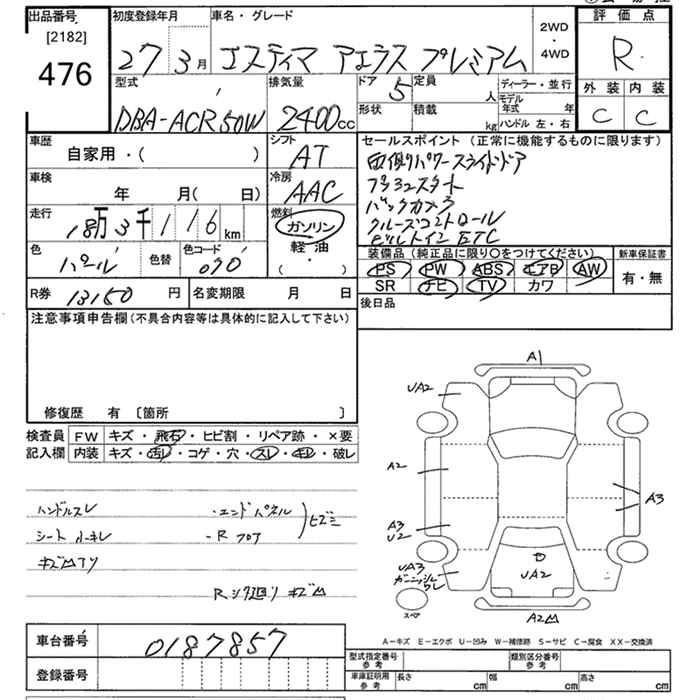 出品番号 初度登録年月 車名・グレード 2WD・4WD 評価点
[2182]
476 27 3月 エスティマ アエラス プレミアム R
型式 排気量 ドア 定員 ディーラー・並行 外装 内装
DBA-ACR50W 2400cc 5 人 モデル年式 年 C C
形状 積載 kg ハンドル 左・右
車歴 シフト セールスポイント(正常に機能するものに限ります)
自家用・( ) AT 両側パワースライドドア
車検 冷房 プッシュスタート
年 月( 日) AAC バックカメラ
走行 燃料 クルーズコントロール
18万3千116km ガソリン ビルトインETC
色 色替 色コード 軽油 装備品(純正品に限り○をつけてください) 新車保証書
パール 070 ( ・ ) PS PW ABS エアB AW 有・無
SR ナビ TV カワ
R券 13150円 名変期限 月 日 後日品
注意事項申告欄(不具合内容等は具体的に記入して下さい)
修復歴 有 [箇所 ]
検査員 FW キズ・飛石・ヒビ割・リペア跡・×要
記入欄 内装 キズ・汚れ・コゲ・穴・スレ・キレ・破レ
ハンドルスレ ・エンドパネル
シート 小キレ ・R フロア ヒズミ
キズ凹アリ
Rシク廻り キズ凹
A1
UA2
A2
A3
A3
U2
UA3
ガーニッシュワレ
UA2
スペア
A2凹
A-キズ E-エクボ U-凹み W-補修跡 S-サビ C-腐食 XX-交換済
車台番号 0187857 型式指定番号 参考 類別区分番号 参考
登録番号 車庫証明用 参考 長さ cm 幅 cm 高さ cm